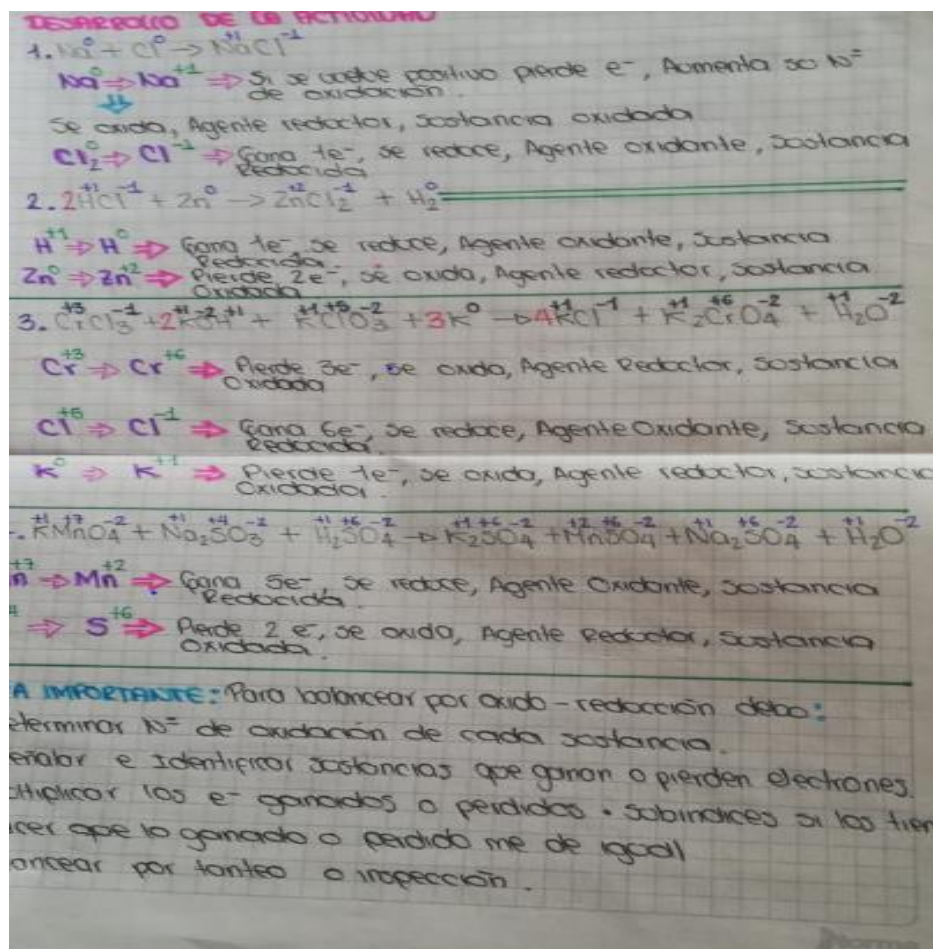 DESARROLLO DE LA ACTIVIDAD
1. Na⁰ + Cl⁰ → Na⁺¹Cl⁻¹
Na⁰ ⇒ Na⁺¹ ⇒ Si se vuelve positivo pierde e⁻, Aumenta so N⁼
de oxidación.
Se oxida, Agente reductor, Sostancia oxidada
Cl₂⁰ ⇒ Cl⁻¹ ⇒ Gana 1e⁻, se reduce, Agente oxidante, Sostancia
Reducida
2. 2H⁺¹Cl⁻¹ + Zn⁰ → Zn⁺²Cl₂⁻¹ + H₂⁰
H⁺¹ ⇒ H⁰ ⇒ Gana 1e⁻, se reduce, Agente oxidante, Sostancia
Reducida
Zn⁰ ⇒ Zn⁺² ⇒ Pierde 2e⁻, se oxida, Agente reductor, sostancia
Oxidada
3. Cr⁺³Cl₃⁻¹ + 2K⁺¹O⁻²H⁺¹ + K⁺¹Cl⁺⁵O₃⁻² + 3K⁰ → 4K⁺¹Cl⁻¹ + K₂⁺¹Cr⁺⁶O₄⁻² + H₂⁺¹O⁻²
Cr⁺³ ⇒ Cr⁺⁶ ⇒ Pierde 3e⁻, se oxida, Agente Reductor, Sostancia
Oxidada
Cl⁺⁵ ⇒ Cl⁻¹ ⇒ Gana 6e⁻, se reduce, Agente Oxidante, Sostancia
Reducida.
K⁰ ⇒ K⁺¹ ⇒ Pierde 1e⁻, se oxida, Agente reductor, sostancia
Oxidada.
. K⁺¹Mn⁺⁷O₄⁻² + Na₂⁺¹S⁺⁴O₃⁻² + H₂⁺¹S⁺⁶O₄⁻² → K₂⁺¹S⁺⁶O₄⁻² + Mn⁺²S⁺⁶O₄⁻² + Na₂⁺¹S⁺⁶O₄⁻² + H₂⁺¹O⁻²
n⁺⁷ ⇒ Mn⁺² ⇒ Gana 5e⁻, se reduce, Agente Oxidante, Sostancia
Reducida.
⁴ ⇒ S⁺⁶ ⇒ Pierde 2 e⁻, se oxida, Agente Reductor, Sustancia
Oxidada.
A IMPORTANTE: Para balancear por oxido-reducción debo:
eterminar N⁼ de oxidación de cada sostancia.
eñalar e Identificar sostancias que ganan o pierden electrones.
ltiplicar los e⁻ ganados o perdidos . Subindices si los tien
cer que lo ganado o perdido me de igual
ancear por tanteo o inspección.